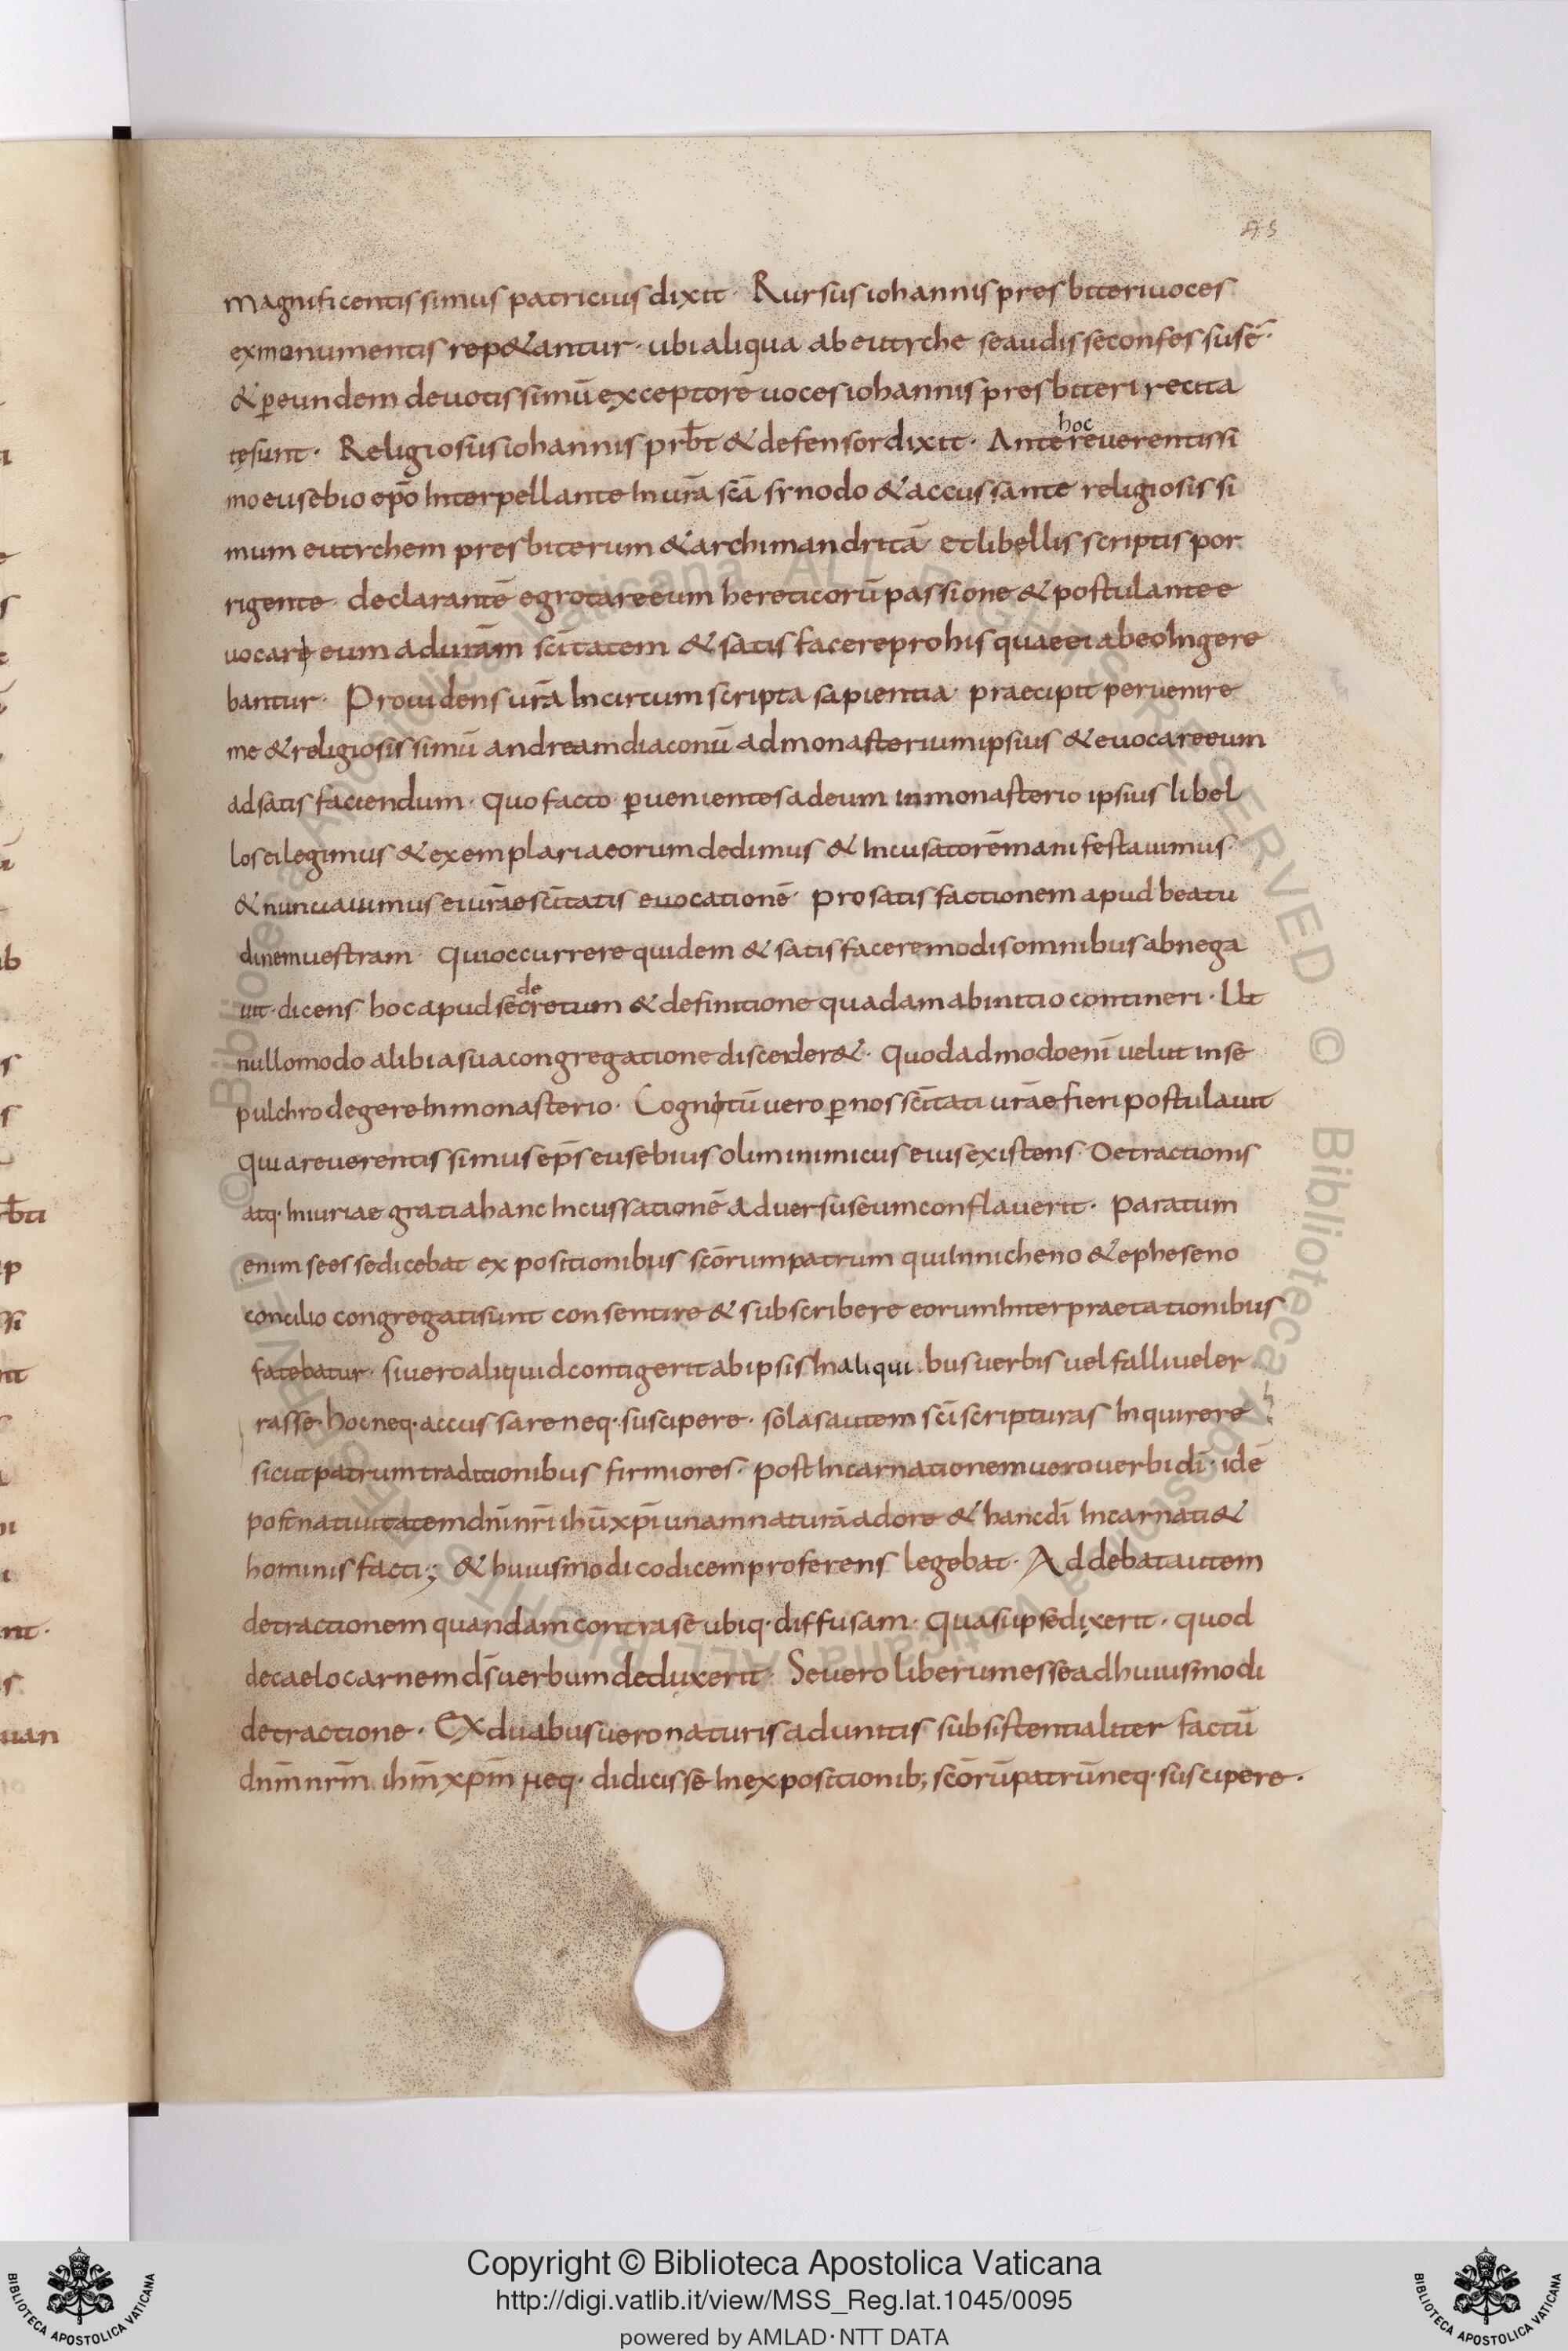 45
magnificentissimus patricius dixit · Rursus iohannis presbiteri uoces
ex monumentis rep&antur · ubi aliqua ab eutyche se audisse confessus ē ·
& p̱ eundem deuotissimū exceptorē uoces iohannis presbiteri recita
te sunt · Religiosus iohannis prb̄t & defensor dixit · Ante hoc reuerentissi
mo eusebio ep̄o Interpellante In ur̄a sc̄a synodo & accussante religiosissi
mum eutychem presbiterum & archimandritā et libellis scriptis por
rigente · declarantē egrotare eum hereticorū passione & postulante e
uocare eum ad ur̄am sc̄itatem & satisfacere pro his quae ei ab eo Ingere
bantur · Prouidens ur̄a Incircumscripta sapientia praecipit peruenire
me & religiosissimū andream diaconū ad monasterium ipsius & euocare eum
ad satisfaciendum · quo facto p̱uenientes ad eum in monasterio ipsius libel
los ei legimus & exemplaria eorum dedimus & Incusatorē manifestauimus ·
& nunciauimus ei ur̄ae sc̄itatis euocationē · pro satisfactionem apud beatu
dinem uestram · qui occurrere quidem & satisfacere modis omnibus abnega
uit · dicens hoc apud se decretum & definitione quadam ab initio contineri · Ut
nullomodo alibi a sua congregatione discederet · quodadmodo enī uelut in se
pulchro degere In monasterio · Cognitū uero p̱ nos sc̄itati ur̄ae fieri postulauit
quia reuerentissimus ep̄s eusebius olim inimicus eius existens Detractionis
atq· Iniuriae gratia hanc Incussationē aduersus eum conflauerit · paratum
enim se esse dicebat expositionibus sc̄orum patrum qui In nicheno & epheseno
concilio congregati sunt consentire & subscribere eorum Interpraetationibus
fatebatur · si uero aliquid contigerit ab ipsis In aliqui..bus uerbis uel falli uel er
rasse · hoc neq· accussare neq· suscipere · solas autem sc̄i scripturas Inquirere
sicut patrum traditionibus firmiores · post Incarnationem uero uerbi dī · idē
post natiuitatem dn̄i nr̄i ih̄u xp̄i unam naturā adore & hanc dī Incarnati &
hominis facti ; & huiusmodi codicem proferens legebat · Addebat autem
detractionem quandam contra se ubiq· diffusam · quasi ipse dixerit · quod
de caelo carnem ds̄ uerbum deduxerit · Se uero liberum esse ad huiusmodi
detractione · EX duabus uero naturis adunitis subsistentialiter factū
dn̄m nr̄m ih̄m xp̄m neq· didicisse In expositionib; sc̄orū patrū neq· suscipere ·
© Biblioteca Apostolica Vaticana ALL RIGHTS RESERVED
© Biblioteca Apostolica Vaticana ALL RIGHTS RESERVED
Copyright © Biblioteca Apostolica Vaticana
http://digi.vatlib.it/view/MSS_Reg.lat.1045/0095
powered by AMLAD·NTT DATA
BIBLIOTECA APOSTOLICA VATICANA
BIBLIOTECA APOSTOLICA VATICANA